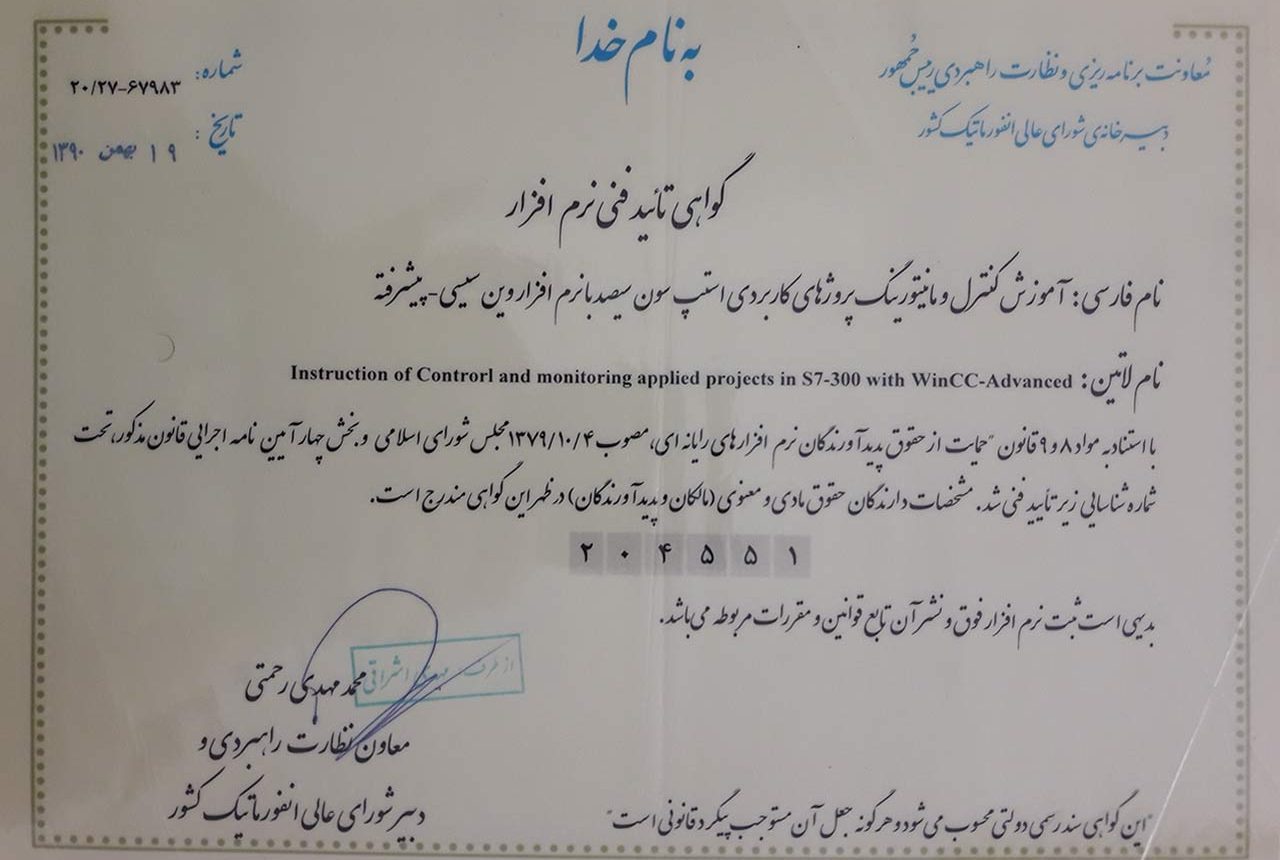 به نام خدا
معاونت برنامه ریزی و نظارت راهبردی رییس جمهور
دبیرخانه‌ی شورای عالی انفورماتیک کشور
شماره: ۲۰/۲۷-۶۷۹۸۳
تاریخ: ۱۹ بهمن ۱۳۹۰
گواهی تائید فنی نرم افزار
نام فارسی: آموزش کنترل و مانیتورینگ پروژهای کاربردی استپ سون سیصد با نرم افزار وین سیسی-پیشرفته
نام لاتین: Instruction of Controrl and monitoring applied projects in S7-300 with WinCC-Advanced
با استناد به مواد ۸ و ۹ قانون "حمایت از حقوق پدیدآورندگان نرم افزارهای رایانه ای، مصوب ۱۳۷۹/۱۰/۴ مجلس شورای اسلامی و بخش چهار آیین نامه اجرایی قانون مذکور، تحت
شماره شناسایی زیر تأیید فنی شد. مشخصات دارندگان حقوق مادی و معنوی (مالکان و پدیدآورندگان) در ظهر این گواهی مندرج است.
۲۰۴۵۵۱
بدیهی است ثبت نرم افزار فوق و نشر آن تابع قوانین و مقررات مربوطه می‌باشد.
از طرف مهدی اشراقی
محمد مهدی رحمتی
معاون نظارت راهبردی و
دبیر شورای عالی انفورماتیک کشور
"این گواهی سند رسمی دولتی محسوب می شود و هرگونه جعل آن مستوجب پیگرد قانونی است"